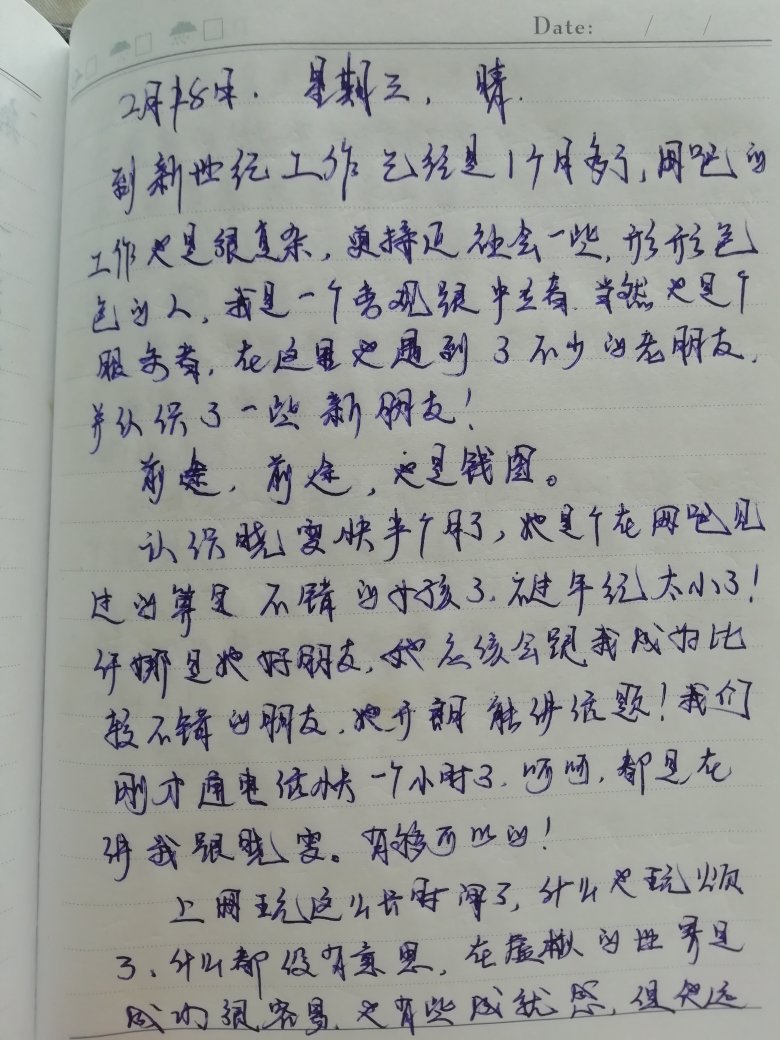 Date: / /
2月18日. 星期三, 晴.
到新世纪工作已经是1个月多了,网吧的
工作也是很复杂,更接近社会一些,形形色
色的人,我是一个客观跟中立者.当然也是个
服务者,在这里也遇到了不少的老朋友,
并认识了一些新朋友!
前途,前途,也是钱图。
认识晓雯快半个月了,她是个在网吧见
过的算是不错的女孩了.就是年纪太小了!
许娜是她好朋友,她应该会跟我成为比
较不错的朋友,她开朗能讲话题!我们
刚才通电话快一个小时了.呵呵,都是在
讲我跟晓雯。有够可以的!
上网玩这么长时间了,什么也玩烦
了、什么都没有意思,在虚拟的世界是
成功很容易,也有些成就感,但他远